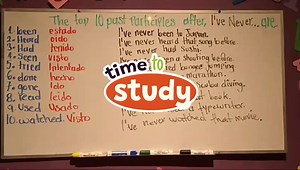 The top 10 past Participles after, I've Never... are
1. been estado I've never been to Japan.
2. Heard oido I've never heard that song before
3. Had tenido I've never had Sushi.
4. Seen visto I've seen a shooting before
5. tried Intentado bungee jumping
6. done hecho marathon.
7. gone ido scuba diving.
8. read leido book.
9. used Usado I've a typewriter.
10. watched Visto I've never watched that movie.
time to
study